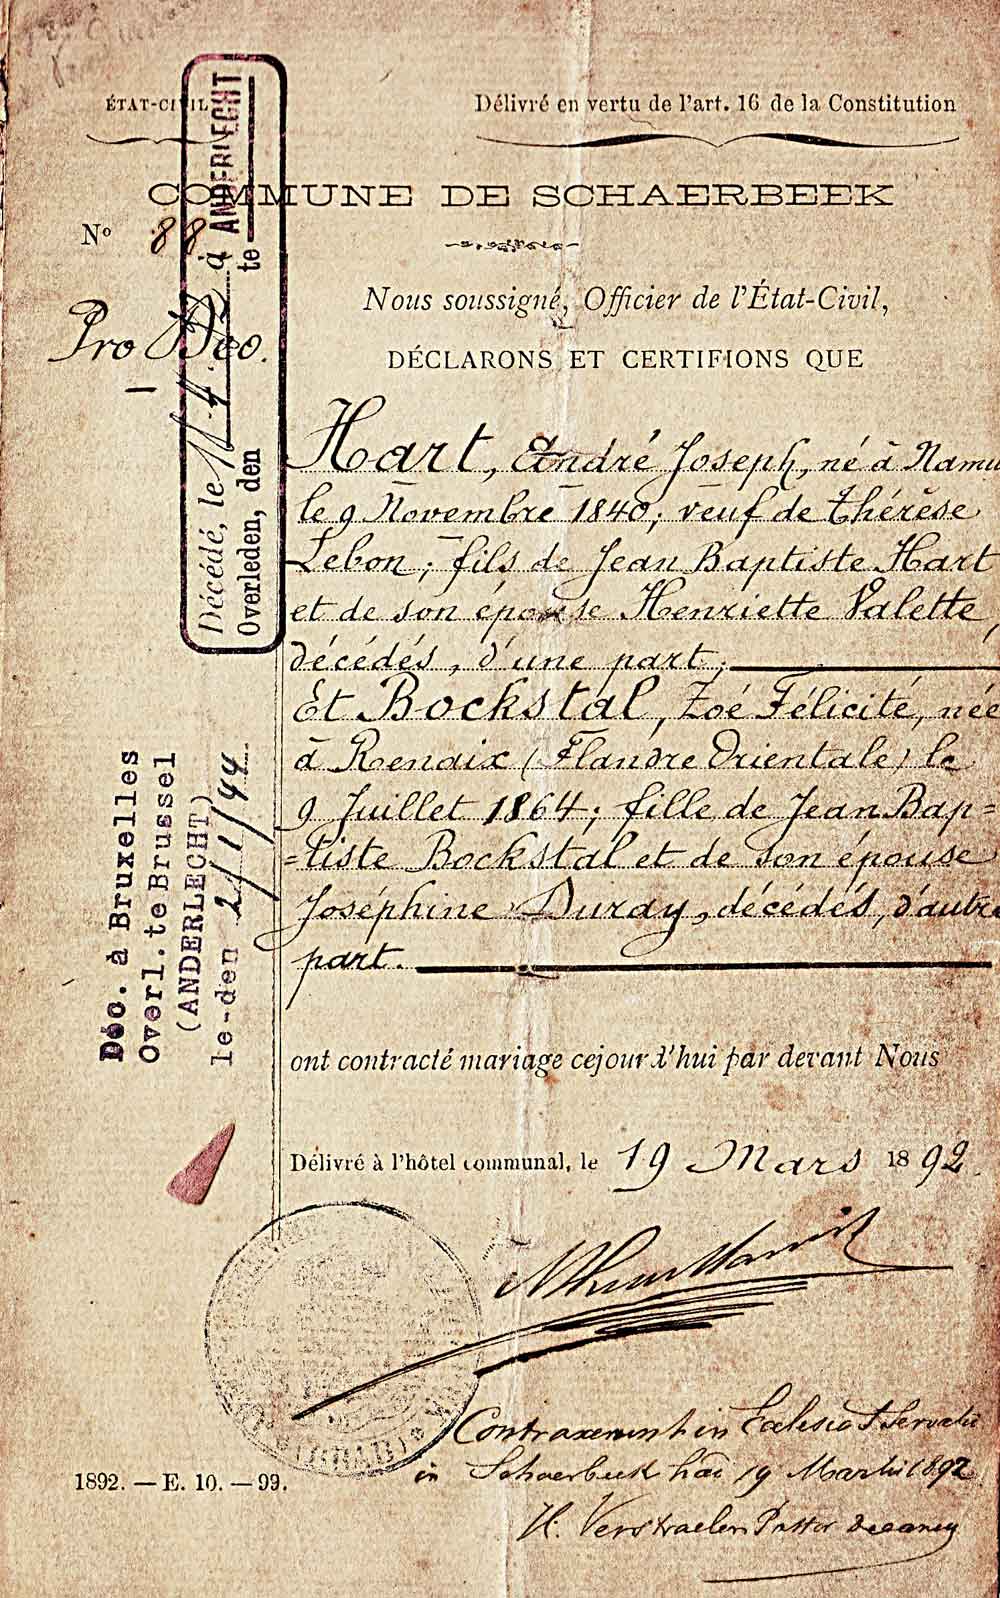 ÉTAT-CIVIL
Délivré en vertu de l'art. 16 de la Constitution
COMMUNE DE SCHAERBEEK
Nº 88
Pro Deo.
Nous soussigné, Officier de l'État-Civil,
DÉCLARONS ET CERTIFIONS QUE
Hart, André Joseph, né à Namu
le 9 Novembre 1840; veuf de Thérèse
Lebon; fils de Jean Baptiste Hart
et de son épouse Henriette Valette,
décédés, d'une part,
Et Bockstal, Zoé Félicité, née
à Renaix (Flandre Orientale) le
9 Juillet 1864; fille de Jean Bap=
=tiste Bockstal et de son épouse
Joséphine Duray, décédés, d'autre
part.
ont contracté mariage cejourd'hui par devant Nous
Délivré à l'hôtel communal, le 19 Mars 1892.
Contraxerunt in Ecclesia S Servatii
in Schaerbeek hac 19 Martii 1892
H. Verstraelen Pastor decanus
1892. — E. 10. — 99.
Décédé, le 4 à ANDERLECHT
Overleden, den te
Déc. à Bruxelles
Overl. te Brussel
(ANDERLECHT)
le-den 2/1/44